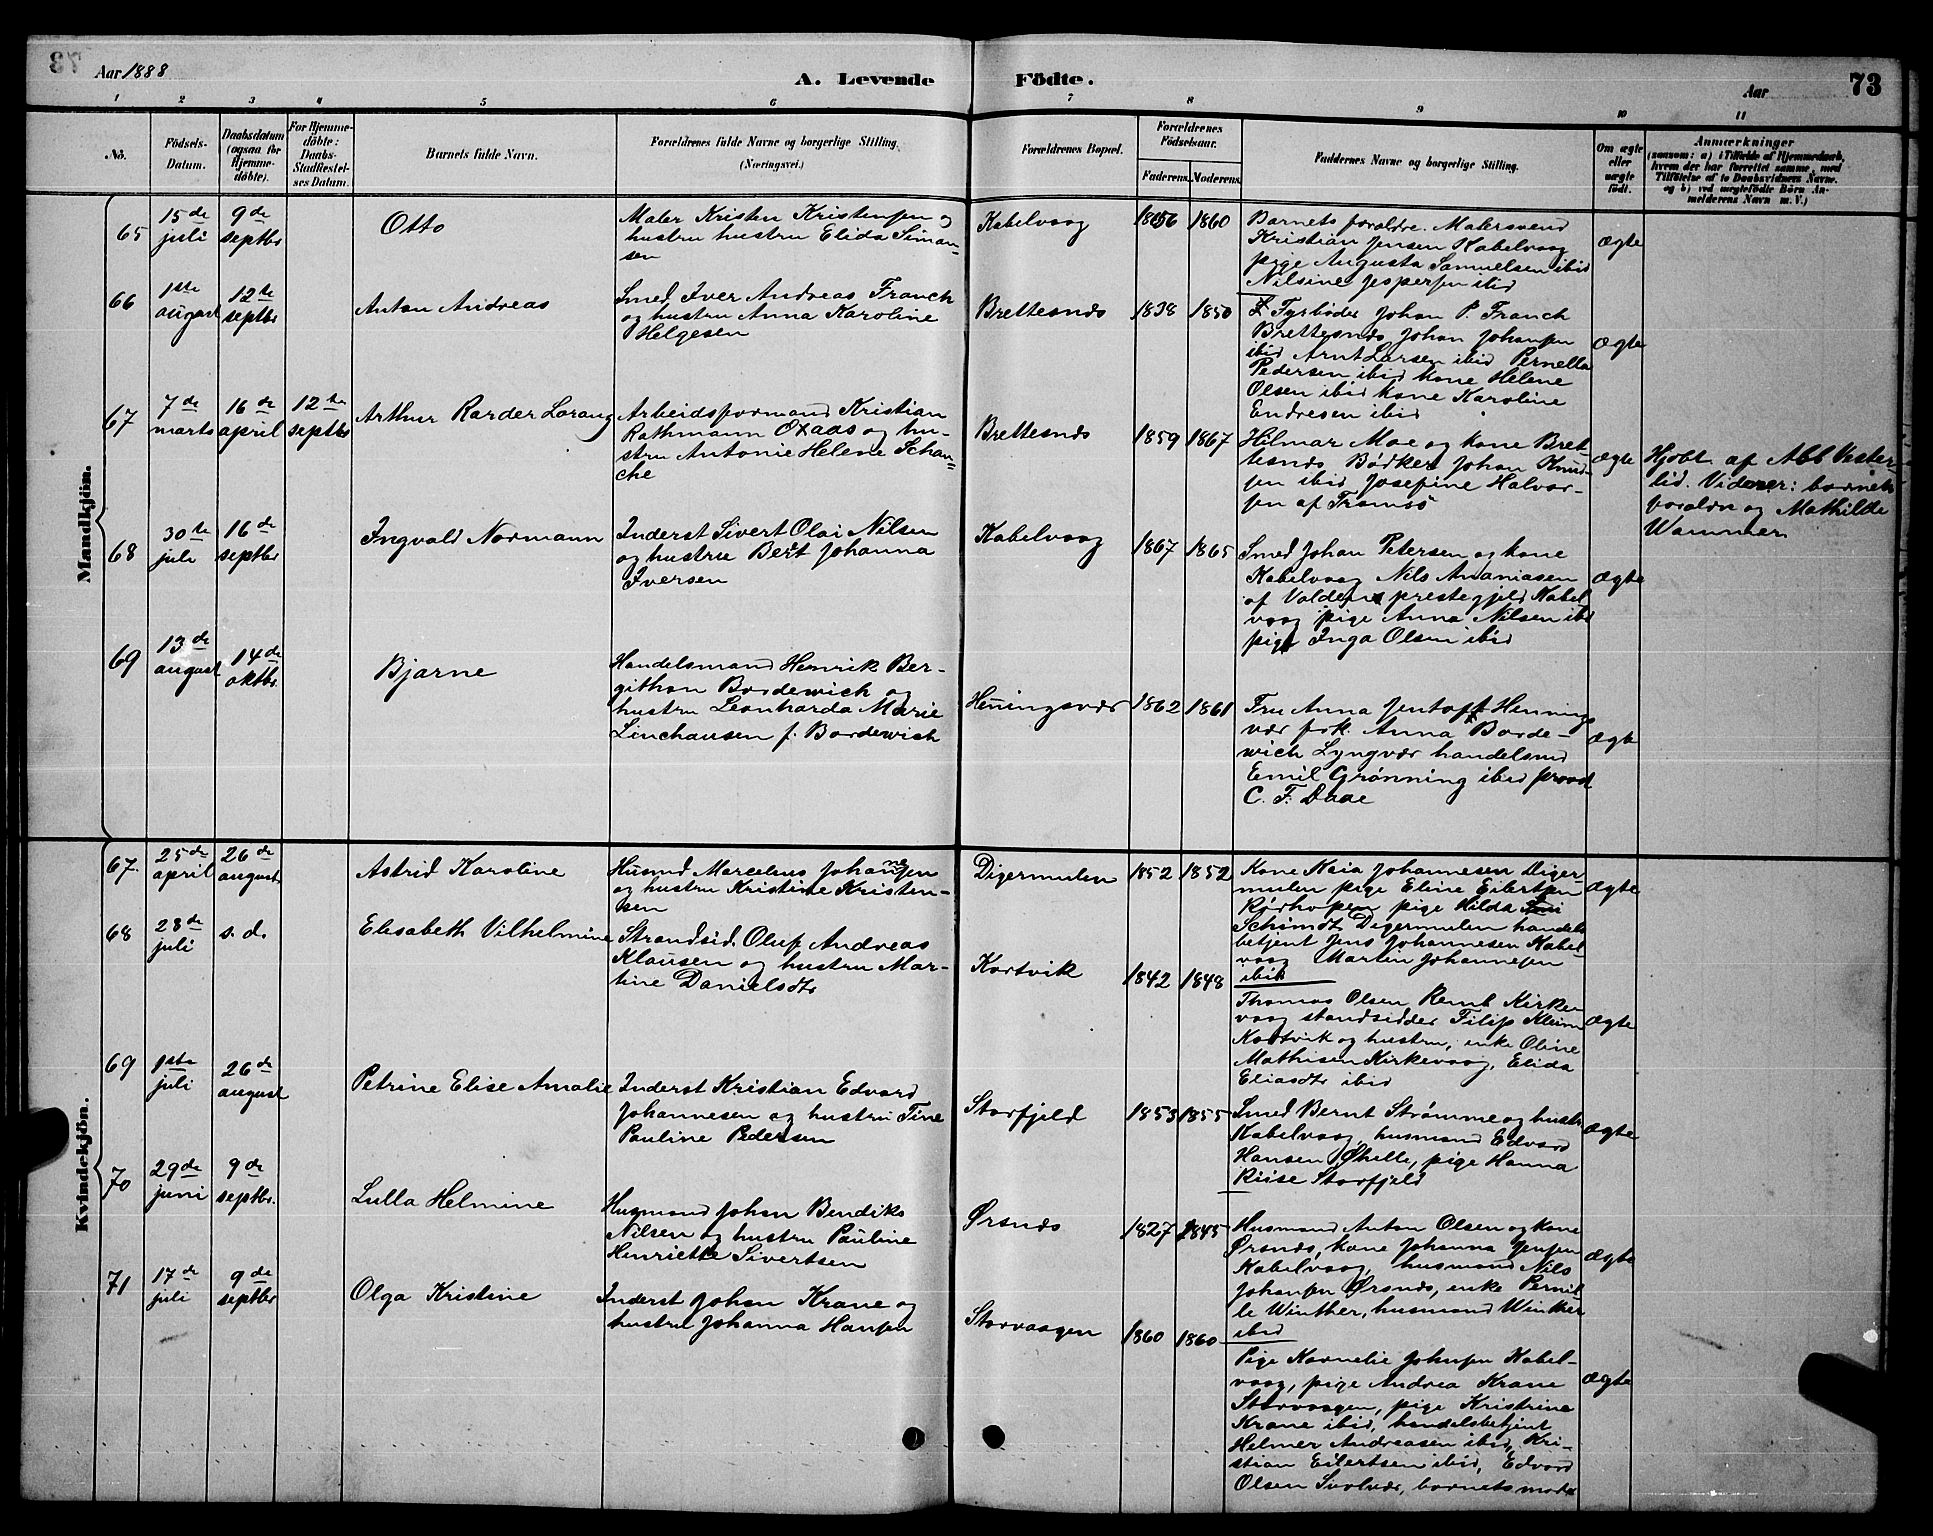 73
Aar 1888
A. Levende
Födte.
Aar
73
1 2 3 4 5 6 7 8 9 10 11
No.
Födsels-
Datum.
Daabsdatum
(ogsaa for
Hjemme-
döbte).
For Hjemme-
döbte:
Daabs-
Stadfæstel-
ses Datum.
Barnets fulde Navn.
Forældrenes fulde Navne og borgerlige Stilling
(Næringsvei.)
Forældrenes Bopæl.
Forældrenes
Födselsaar.
Faderens. Moderens.
Faddernes Navne og borgerlige Stilling.
Om ægte
eller
uægte
födt.
Anmærkninger
(saasom: a) i Tilfælde af Hjemmedaab,
hvem der har forrettet samme, med
Tilföielse af to Daabsvidners Navne.
og b) ved uægtefödte Börn An-
melderens Navn m. V.)
Mandkjön.
65
15de
juli
9de
septbr
Otto
Maler Kristen Kristensen og
hustru hustru Elida Siman-
sen
Kabelvaag
1856
1860
Barnets foræaldre. Malersvend
Kristian Jensen Kabelvaag
pige Augusta Samuelsen ibid
Nilsine Jespersen ibid
Ægte
66
1ste
august
12te
septbr
Anton Andreas
Smed Iver Andreas Franch
og hustru Anna Karoline
Helgesen
Brettesnæs
1838
1850
Fyrbøder Johan P. Franch
Brettesnæs Johan Johansen
ibid Arnt Larsen ibid Pernella
Pedersen ibid kone Helene
Olsen ibid kone Karoline
Endresen ibid
Ægte
67
7de
marts
16de
april
12te
septbr
Arthur Rarder Lorang
Arbeidsformand Kristian
Rathmann Oxaas og hu-
stru Antonie Helene Schan-
che
Brettesnæs
1859
1867
Hilmar Moe og kone Bret-
tesnæs Bødker Johan Knud-
sen ibid Josefine Halvor-
sen af Tromsø
Ægte
Hjdbt af Abb Vester-
lid. Vidner: barnets
forældre og Mathilde
Wammer
68
30te
juli
16de
septbr
Ingvald Normann
Inderst Sivert Olai Nilsen
og hustru Berit Johanna
Iversen
Kabelvaag
1867
1865
Smed Johan Petersen og kone
Kabelvaag Nils Ananiasen
af Volden prestegjeld Kabel-
vaag pige Anna Nilsen ibid
pige Inga Olsen ibid
Ægte
69
13de
august
14de
oktbr.
Bjarne
Handelsmand Henrik Ber-
githon Bordewich og
hustru Leonharda Marie
Linchausen f. Bordewich
Henningsvær
1862
1861
Fru Anna Jentoft Hennings
vær frk. Anna Borde-
wich Lyngvær handelsmd
Emil Grønning ibid provst
C. F. Daae
Ægte
Kvindekjön.
67.
25de
april
26de
august
Astrid Karoline
Husmd Marcelius Johannesen
og hustru Kristine Kristen-
sen
Digermulen
1852
1852
Kone Kaia Johannesen Diger-
mulen pige Eline Eilertsen
Rørhopen pige Hilda
Schimdt Digermulen handels
betjent Jens Johannesen Kabel-
vaag Martin Johannesen
ibid
Ægte
68
28de
juli
s. d.
Elisabeth Vilhelmine
Strandsid. Oluf Andreas
Klausen og hustru Mar-
tine Danielsdtr
Kortvik
1842
1848
Thomas Olsen Remt Kirke
vaag standsidder Filip Kleim
Kortvik og hustru, enke Oline
Mathisen Kirkevaag, Elida
Eliasdtr ibid
Ægte
69
1ste
juli
26de
august
Petrine Elise Amalie
Inderst Kristian Edvard
Johannesen og hustru Tine
Pauline Pedersen
Storfjeld
1853
1855
Smed Bernt Strømme og hustr
Kabelvaag, husmand Edvard
Hansen Ørhelle, pige Hanna
Riise Storfjeld
Ægte
70
29de
juni
9de
septbr.
Lulla Helmine
Husmand Johan Bendiks
Nilsen og hustru Pauline
Henriette Sivertsen
Ørsnæs
1827
1845
Husmand Anton Olsen og kone
Ørsnæs, kone Johanna Jensen
Kabelvaag, husmand Nils
Johansen Ørsnæs, enke Pernil-
le Winther, husmand Winther
ibid
Ægte
71
17de
juli
9de
septbr
Olga Kristine
Inderst Johan Krane og
hustru Johanna Hansen
Storvaagen
1860
1860
Pige Kornelie Johnsen Kabel-
vaag, pige Andrea Krane
Storvaagen, pige Kristine
Krane ibid, handelsbetjent
Helmer Andreasen ibid, Kri-
stian Eilertsen ibid, Edvard
Olsen Svolvær, barnets moder
Ægte